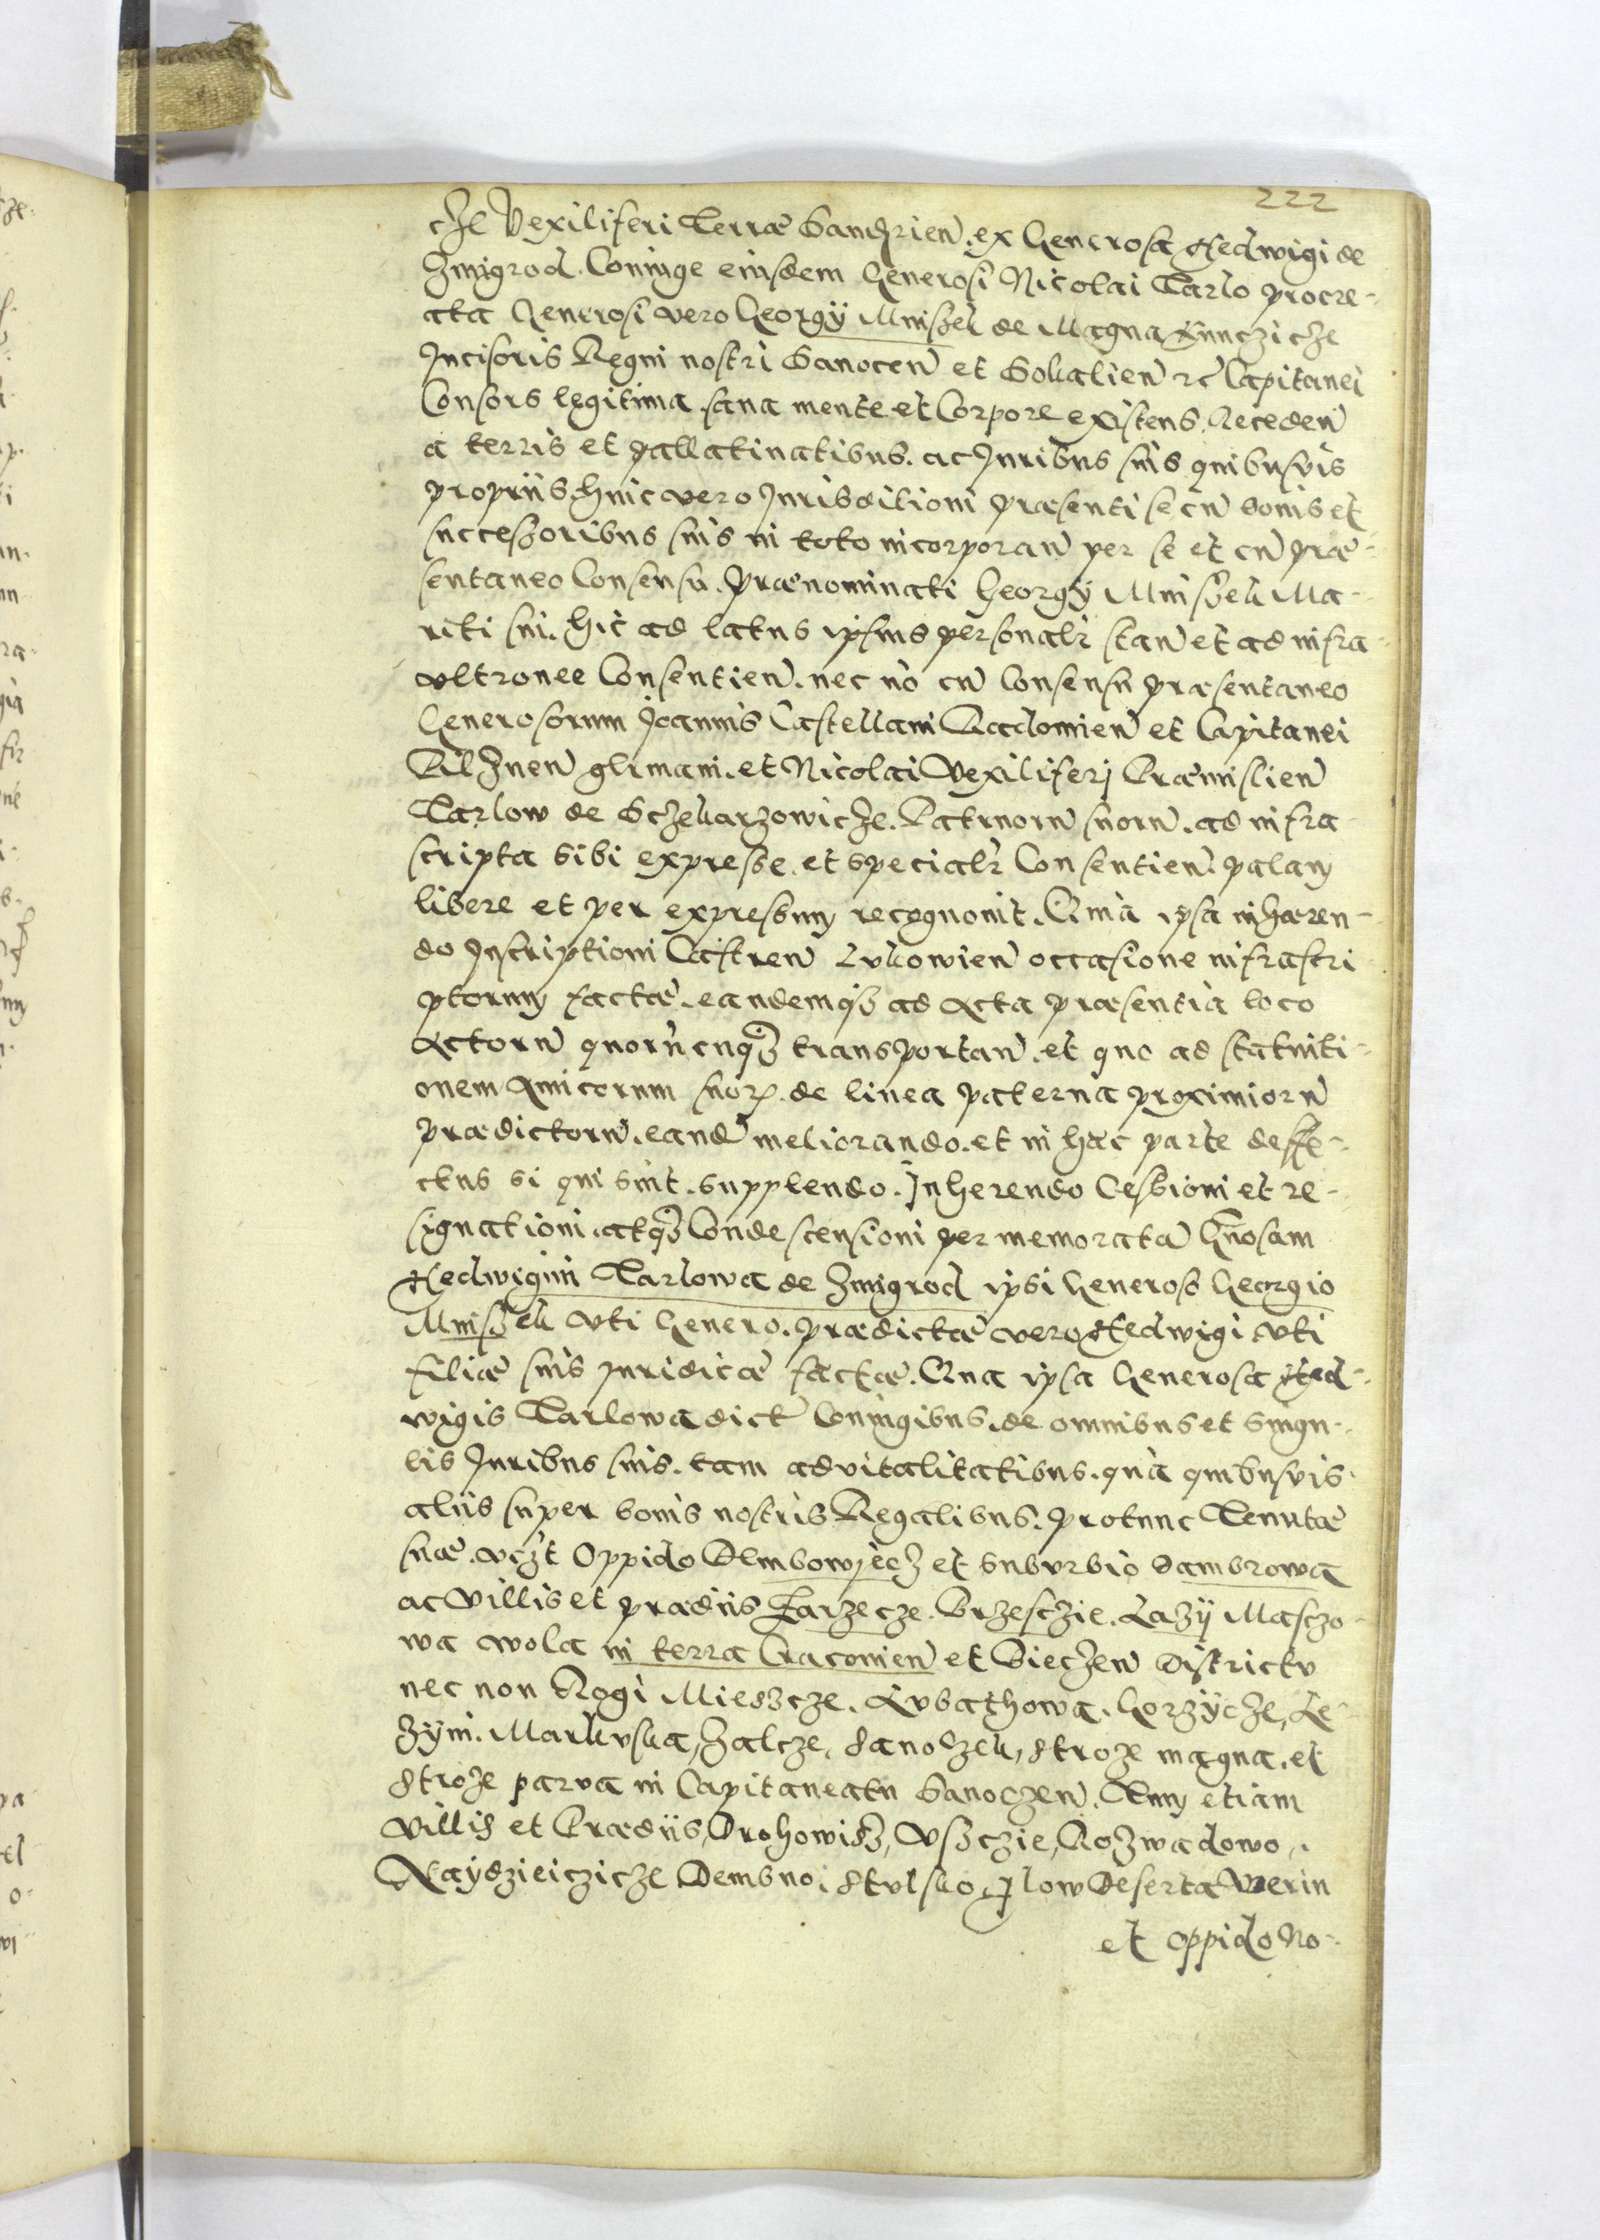 222
cze Vexiliferi Terræ Sandzrien. ex Generosa Hedwigi de
Zmigrod. Coniuge eiusdem Generosi Nicolai Tarlo procre-
ata Generosi vero Georgÿ Mniszek de Magna Kunczicze
Incisoris Regni nostri Sanocen̄ et Sokalien̄ etc̄ Capitanei
Consors legitima. sana mente et Corpore existens. Receden̄
a terris et pallatinatibus. ac Iuribus suis quibusvis
propriis. huic vero Iurisditioni præsenti se cū bonis et
successoribus suis in toto incorporan̄ per se et cū præ-
sentaneo Consensu. prænominati Georgÿ Mniszek Ma-
riti sui. hic ad latus ipsius personalr̄ stan̄ et ad infra
ultronee Consentien̄. nec nō cū Consensu præsentaneo
Generosorum Joannis Castellani Radomien̄ et Capitanei
Pilznen̄ germani. et Nicolai Vexiliferj Præmislien̄
Tarlow de Sczekarzowicze. Patruorū suorū. ad infra
scripta sibi expresse. et specialr̄ Consentien̄. palam
libere et per expressum recognovit. Quia ipsa inhæren-
do Inscriptioni Castren̄ Lukowien̄ occasione infrascri
ptorum factæ. eandemq3 ad Acta præsentia loco
Actorū quorūcunq3 transportan̄. et quo ad statuiti-
onem Amicorum suor. de linea paterna proximiorū
prædictorū. eandē meliorando. et in hac parte deffe-
ctus si qui sint. supplendo. Inherendo Cessioni et re-
signationi. atq3 Condescensioni per memoratā Gn̄osam
Hedwigim Tarlowa de Zmigrod ipsi Generoso Georgio
Mniszek uti Genero. prædictæ vero Hedwigi uti
filiæ suis iuridicæ factæ. Qua ipsa Generosa Hed-
wigis Tarlowa dict̄ Coniugibus. de omnibus et singu-
lis Iuribus suis. tam advitalitatibus. quā quibusvis
aliis super bonis nostris Regalibus. protunc Tenutæ
suæ. vcz̄t Oppido Dembowjecz et suburbio Dambrowa
ac Villis et prædiis Zarzecze. Brzesczie. Łazÿ Masczo-
wa wola in terra Cracovien̄ et Bieczen̄ Districtu
nec non Rogi Miesze. Lubathowa. Gorzÿcze, Le-
zÿni. Markuska, Zalcze, Sanoczek, Stroze magna. et
Stroze parva in Capitaneatu Sanoczen̄. Tum etiam
Villis et Prædiis Drohowisz, Usczie, Rozwadowo,
Naÿdzieiczicze Dembno, Stulsko Ilow Deserta Werin
et Oppido No-